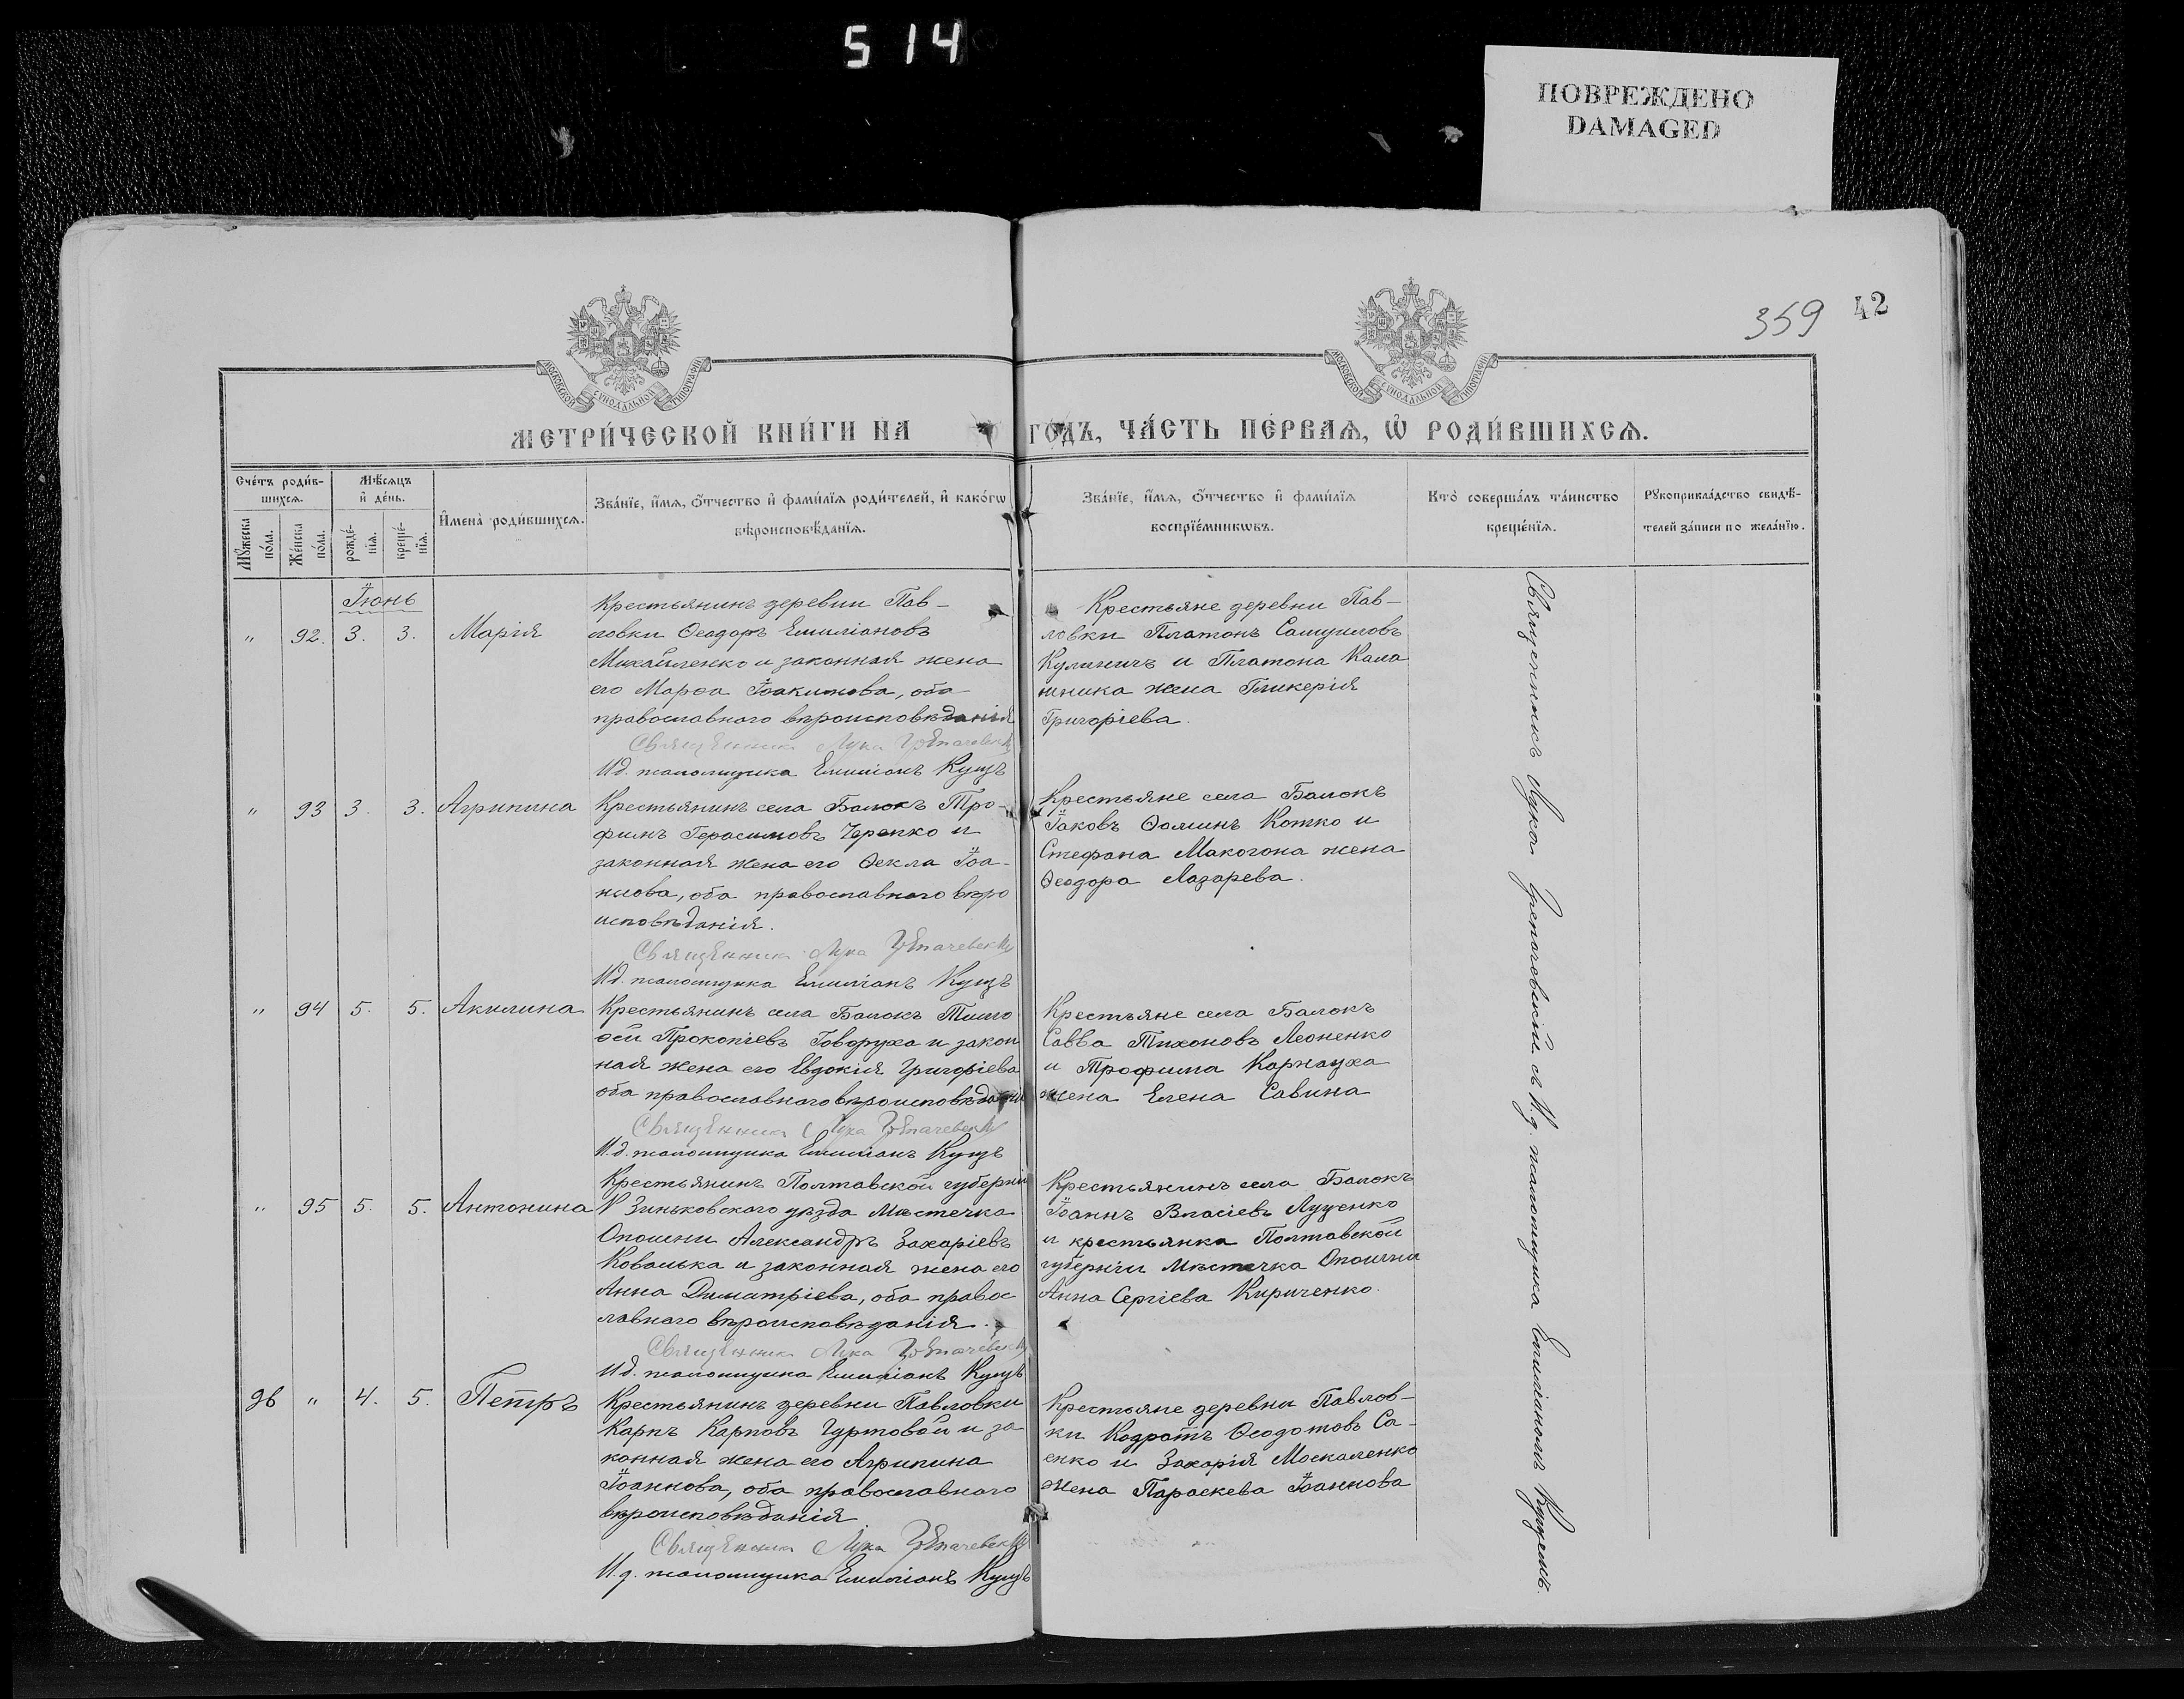 514
ПОВРЕЖДЕНО
DAMAGED
359 42
МОСКОВСКОЙ СУНОДАЛЬНОЙ ТИПОГРАФІИ
МОСКОВСКОЙ СУНОДАЛЬНОЙ ТИПОГРАФІИ
МЕТРИ́ЧЕСКОЙ КНИ́ГИ НА ГОДЪ, ЧА́СТЬ ПЕ́РВАѦ, Ѡ РОДИ́ВШИХСѦ.
Сче́тъ роди́в-
шихсѧ.
Мꙋ́жеска по́ла.
Же́нска по́ла.
Мѣ́сѧцъ
и҆ де́нь.
рожде́-
нїѧ.
креще́-
нїѧ.
И҆мена̀ роди́вшихсѧ.
Зва́нїе, и҆́мѧ, ѻ҆́тчество и҆ фами́лїѧ роди́телей, и҆ како́гѡ
вѣроисповѣ́данїѧ.
Зва́нїе, и҆́мѧ, ѻ҆́тчество и҆ фами́лїѧ
воспрїе́мникѡвъ.
Кто̀ соверша́лъ та́инство
креще́нїѧ.
Рꙋкоприкла́дство свидѣ́-
телей за́писи по жела́нїю.
Іюнь
" 92. 3. 3. Марія
Крестьянинъ деревни Пав-
ловки Ѳеодоръ Емиліановъ
Михайленко и законная жена
его Марѳа Іоакимова, оба
православнаго вѣроисповѣданія
Священникъ Лука
И.д. псаломщика Емиліанъ Кущъ
Крестьяне деревни Пав-
ловки Платонъ Самуиловъ
Кулиничъ и Платона Кала
шника жена Гликерія
Григоріева.
" 93 3. 3. Агрипина
Крестьянинъ села Балокъ Тро-
фимъ Герасимовъ Черепко и
законная жена его Ѳекла Іоа-
ннова, оба православнаго вѣро
исповѣданія.
Священникъ Лука
И.д. псаломщика Емиліанъ Кущъ
Крестьяне села Балокъ
Іаковъ Ѳоминъ Котко и
Стефана Макогона жена
Ѳеодора Лазарева.
" 94 5. 5. Акилина
Крестьянинъ села Балокъ Тимо
ѳей Прокопіевъ Говоруха и закон
ная жена его Евдокія Григоріева
оба православнаго вѣроисповѣданія
Священникъ Лука
И.д. псаломщика Емиліанъ Кущъ
Крестьяне села Балокъ
Савва Тихоновъ Леоненко
и Трофима Карнауха
жена Елена Савина
" 95 5. 5. Антонина
Крестьянинъ Полтавской губерніи
Зиньковского уѣзда Мѣстечка
Опошни Александръ Захаріевъ
Ковалька и законная жена его
Анна Димитріева, оба правос
лавнаго вѣроисповѣданія.
Священникъ Лука
И.д. псаломщика Емиліанъ Кущъ
Крестьянинъ села Балокъ
Іоаннъ Власіевъ Луценко
и крестьянка Полтавской
губерніи Мѣстечка Опошни
Анна Сергіева Кириченко.
36 " 4. 5. Петръ
Крестьянинъ деревни Павловки
Карпъ Карповъ Гуртовой и за
конная жена его Агрипина
Іоаннова, оба православнаго
вѣроисповѣданія
Священникъ Лука
И.д. псаломщика Емиліанъ Кущъ
Крестьяне деревни Павлов-
ки Кодратъ Ѳеодотовъ Са-
енко и Захарія Москаленко
жена Параскева Іоаннова
Священникъ Лука съ И.д. псаломщика Емиліаномъ Кущемъ.